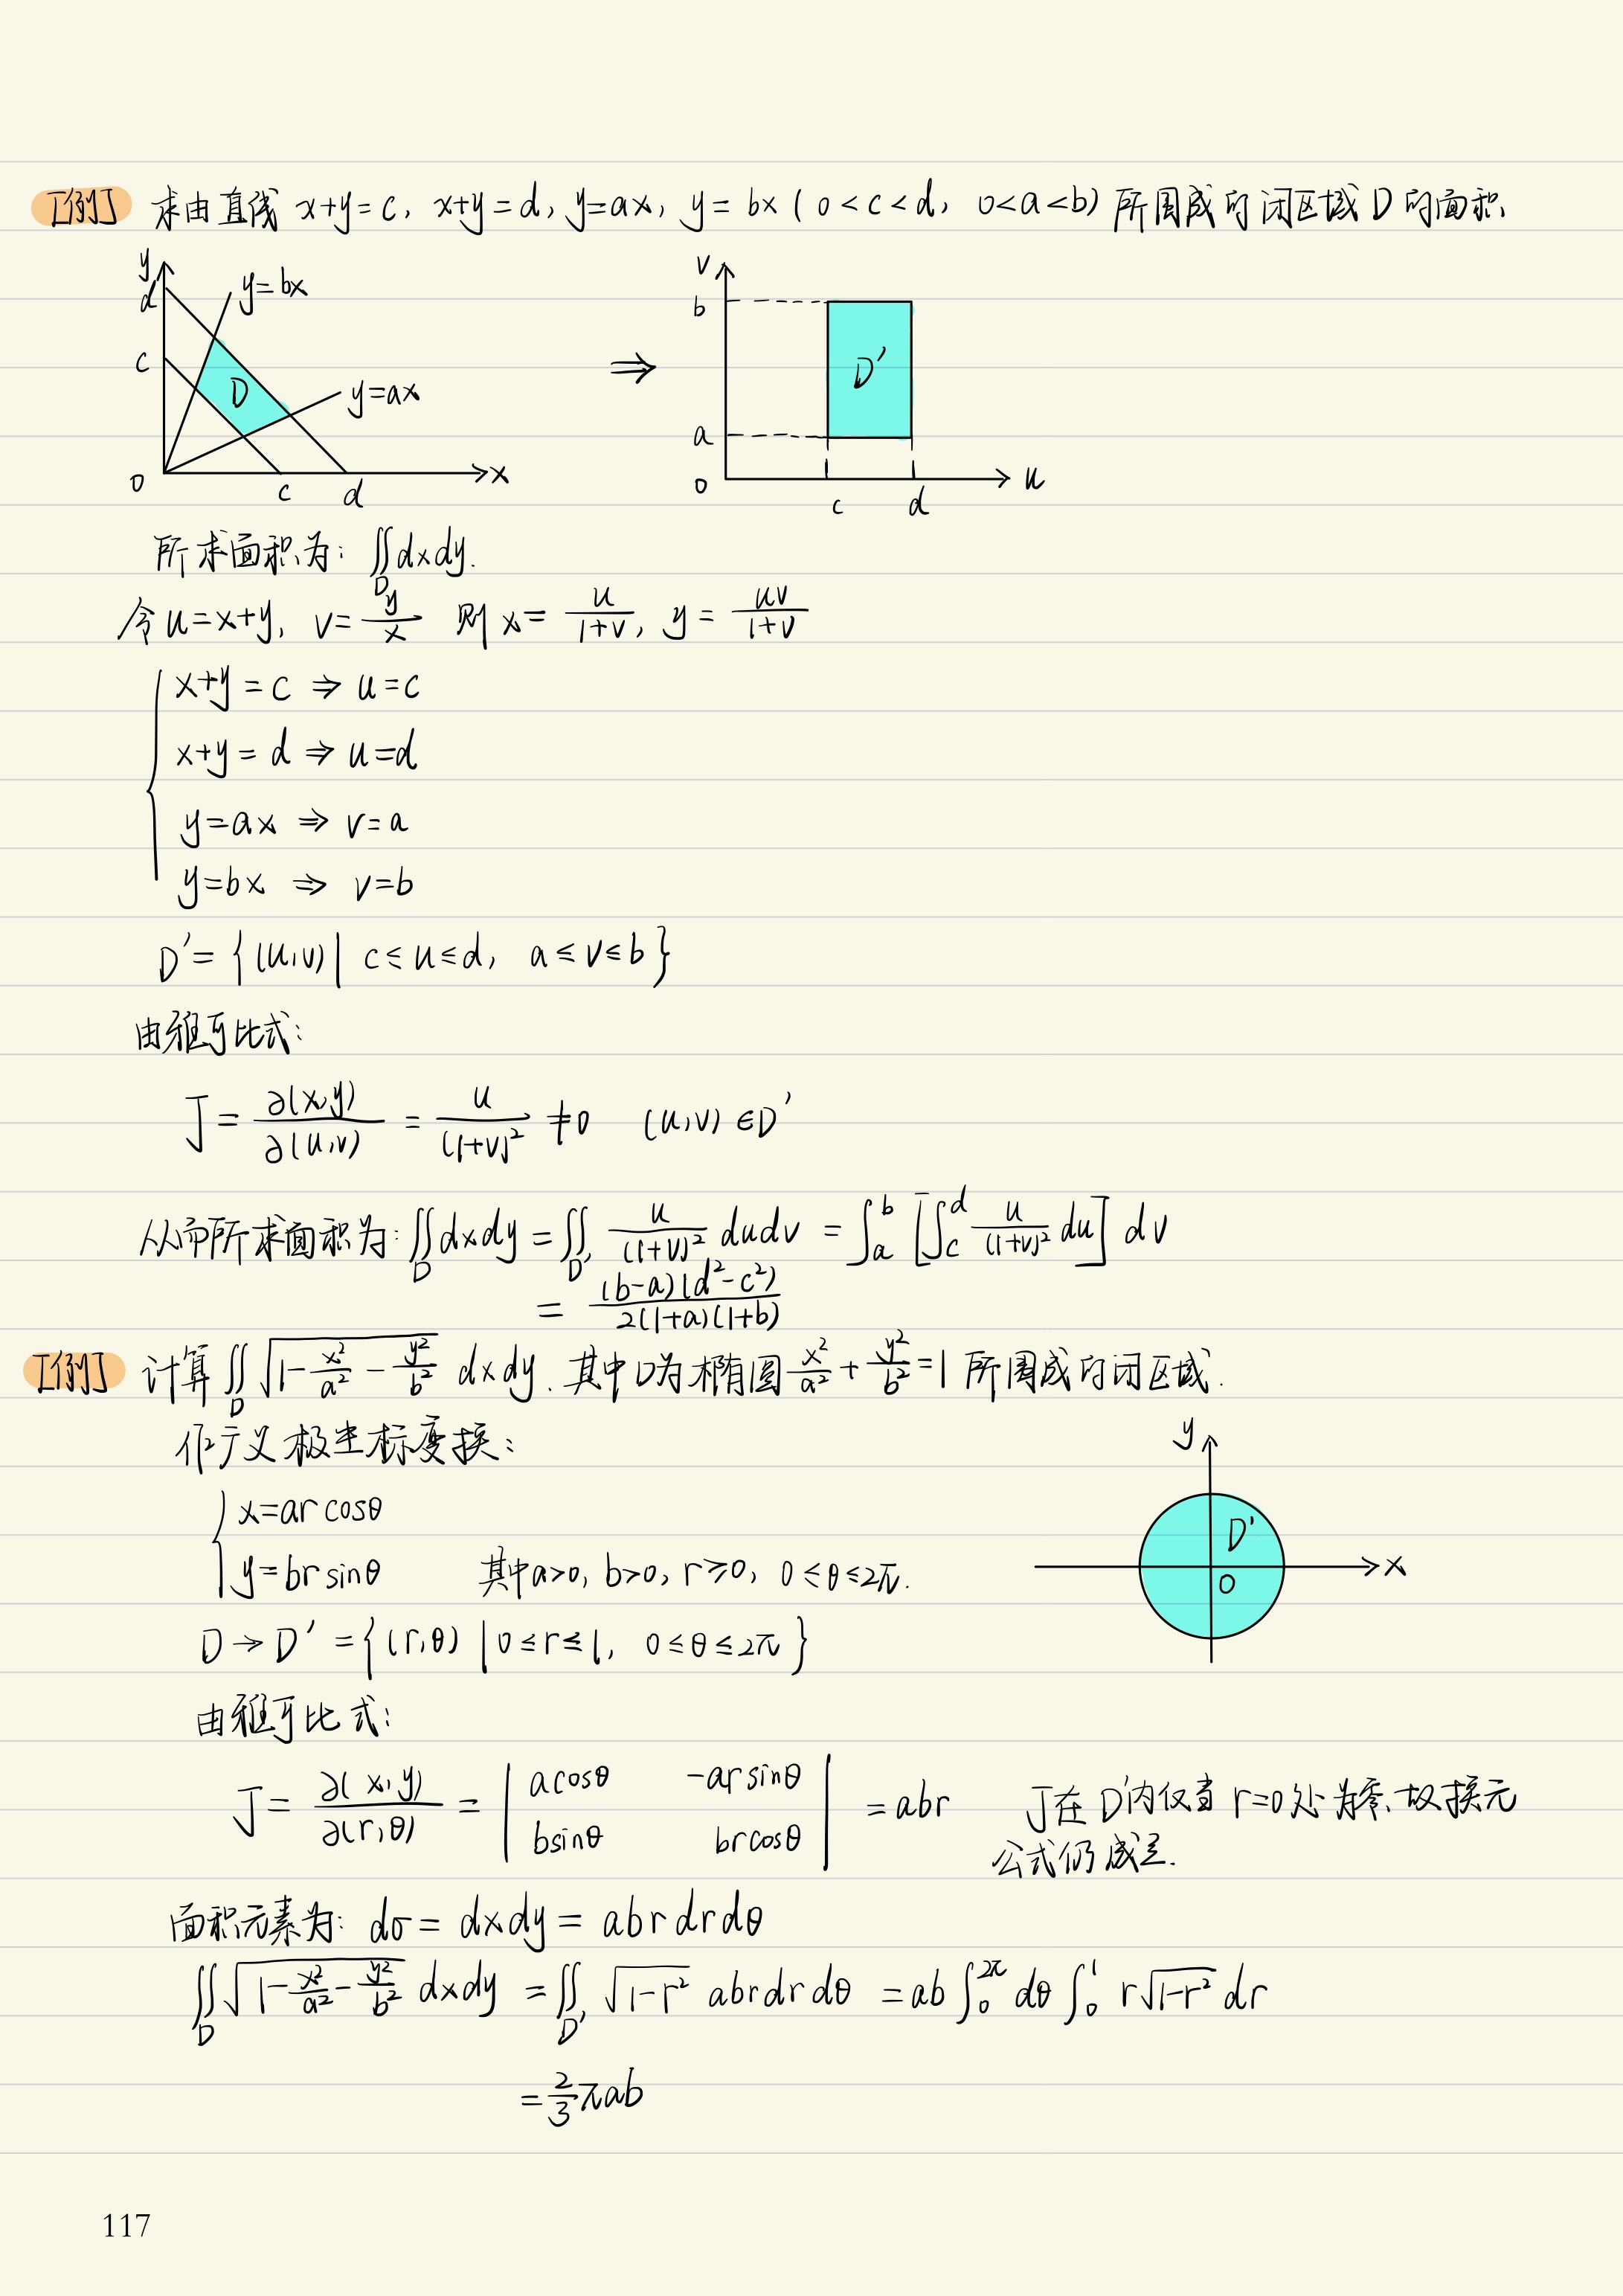 [例] 求由直线 x+y=c, x+y=d, y=ax, y=bx (0<c<d, 0<a<b) 所围成的闭区域 D 的面积.
y d c o c d x y=bx y=ax D ⇒ v b a o c d u D′
所求面积为: ∬_D dxdy.
令 u=x+y, v=\frac{y}{x} 则 x=\frac{u}{1+v}, y=\frac{uv}{1+v}
x+y=c ⇒ u=c
x+y=d ⇒ u=d
y=ax ⇒ v=a
y=bx ⇒ v=b
D′={(u,v)| c≤u≤d, a≤v≤b}
由雅可比式:
J=\frac{∂(x,y)}{∂(u,v)}=\frac{u}{(1+v)^2}≠0 (u,v)∈D′
从而所求面积为: ∬_D dxdy=∬_{D′} \frac{u}{(1+v)^2} dudv=∫_a^b [∫_c^d \frac{u}{(1+v)^2} du] dv
=\frac{(b-a)(d^2-c^2)}{2(1+a)(1+b)}
[例] 计算 ∬_D \sqrt{1-\frac{x^2}{a^2}-\frac{y^2}{b^2}} dxdy. 其中D为椭圆 \frac{x^2}{a^2}+\frac{y^2}{b^2}=1 所围成的闭区域.
作广义极坐标变换:
x=arcosθ
y=brsinθ 其中a>0, b>0, r≥0, 0≤θ≤2π.
y D′ O x
D→D′={(r,θ) | 0≤r≤1, 0≤θ≤2π}
由雅可比式:
J=\frac{∂(x,y)}{∂(r,θ)}=\begin{vmatrix} acosθ & -arsinθ \\ bsinθ & brcosθ \end{vmatrix}=abr J在 D′内仅当 r=0处为零, 故换元
公式仍成立.
面积元素为: dσ=dxdy=abrdrdθ
∬_D \sqrt{1-\frac{x^2}{a^2}-\frac{y^2}{b^2}} dxdy=∬_{D′} \sqrt{1-r^2} abrdrdθ=ab∫_0^{2π} dθ∫_0^1 r\sqrt{1-r^2} dr
=\frac{2}{3}πab
117